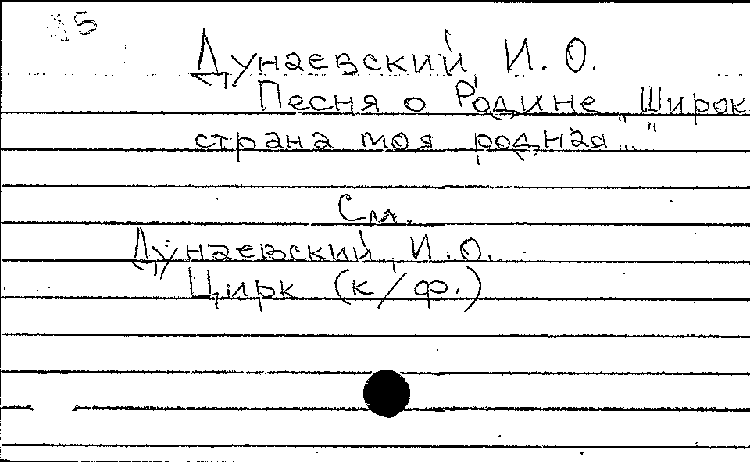 Дунаевский, И. О.
Песня о Родине „Широк
страна моя родная..."
См.
Дунаевский, И. О.
Цирк (к/ф.)